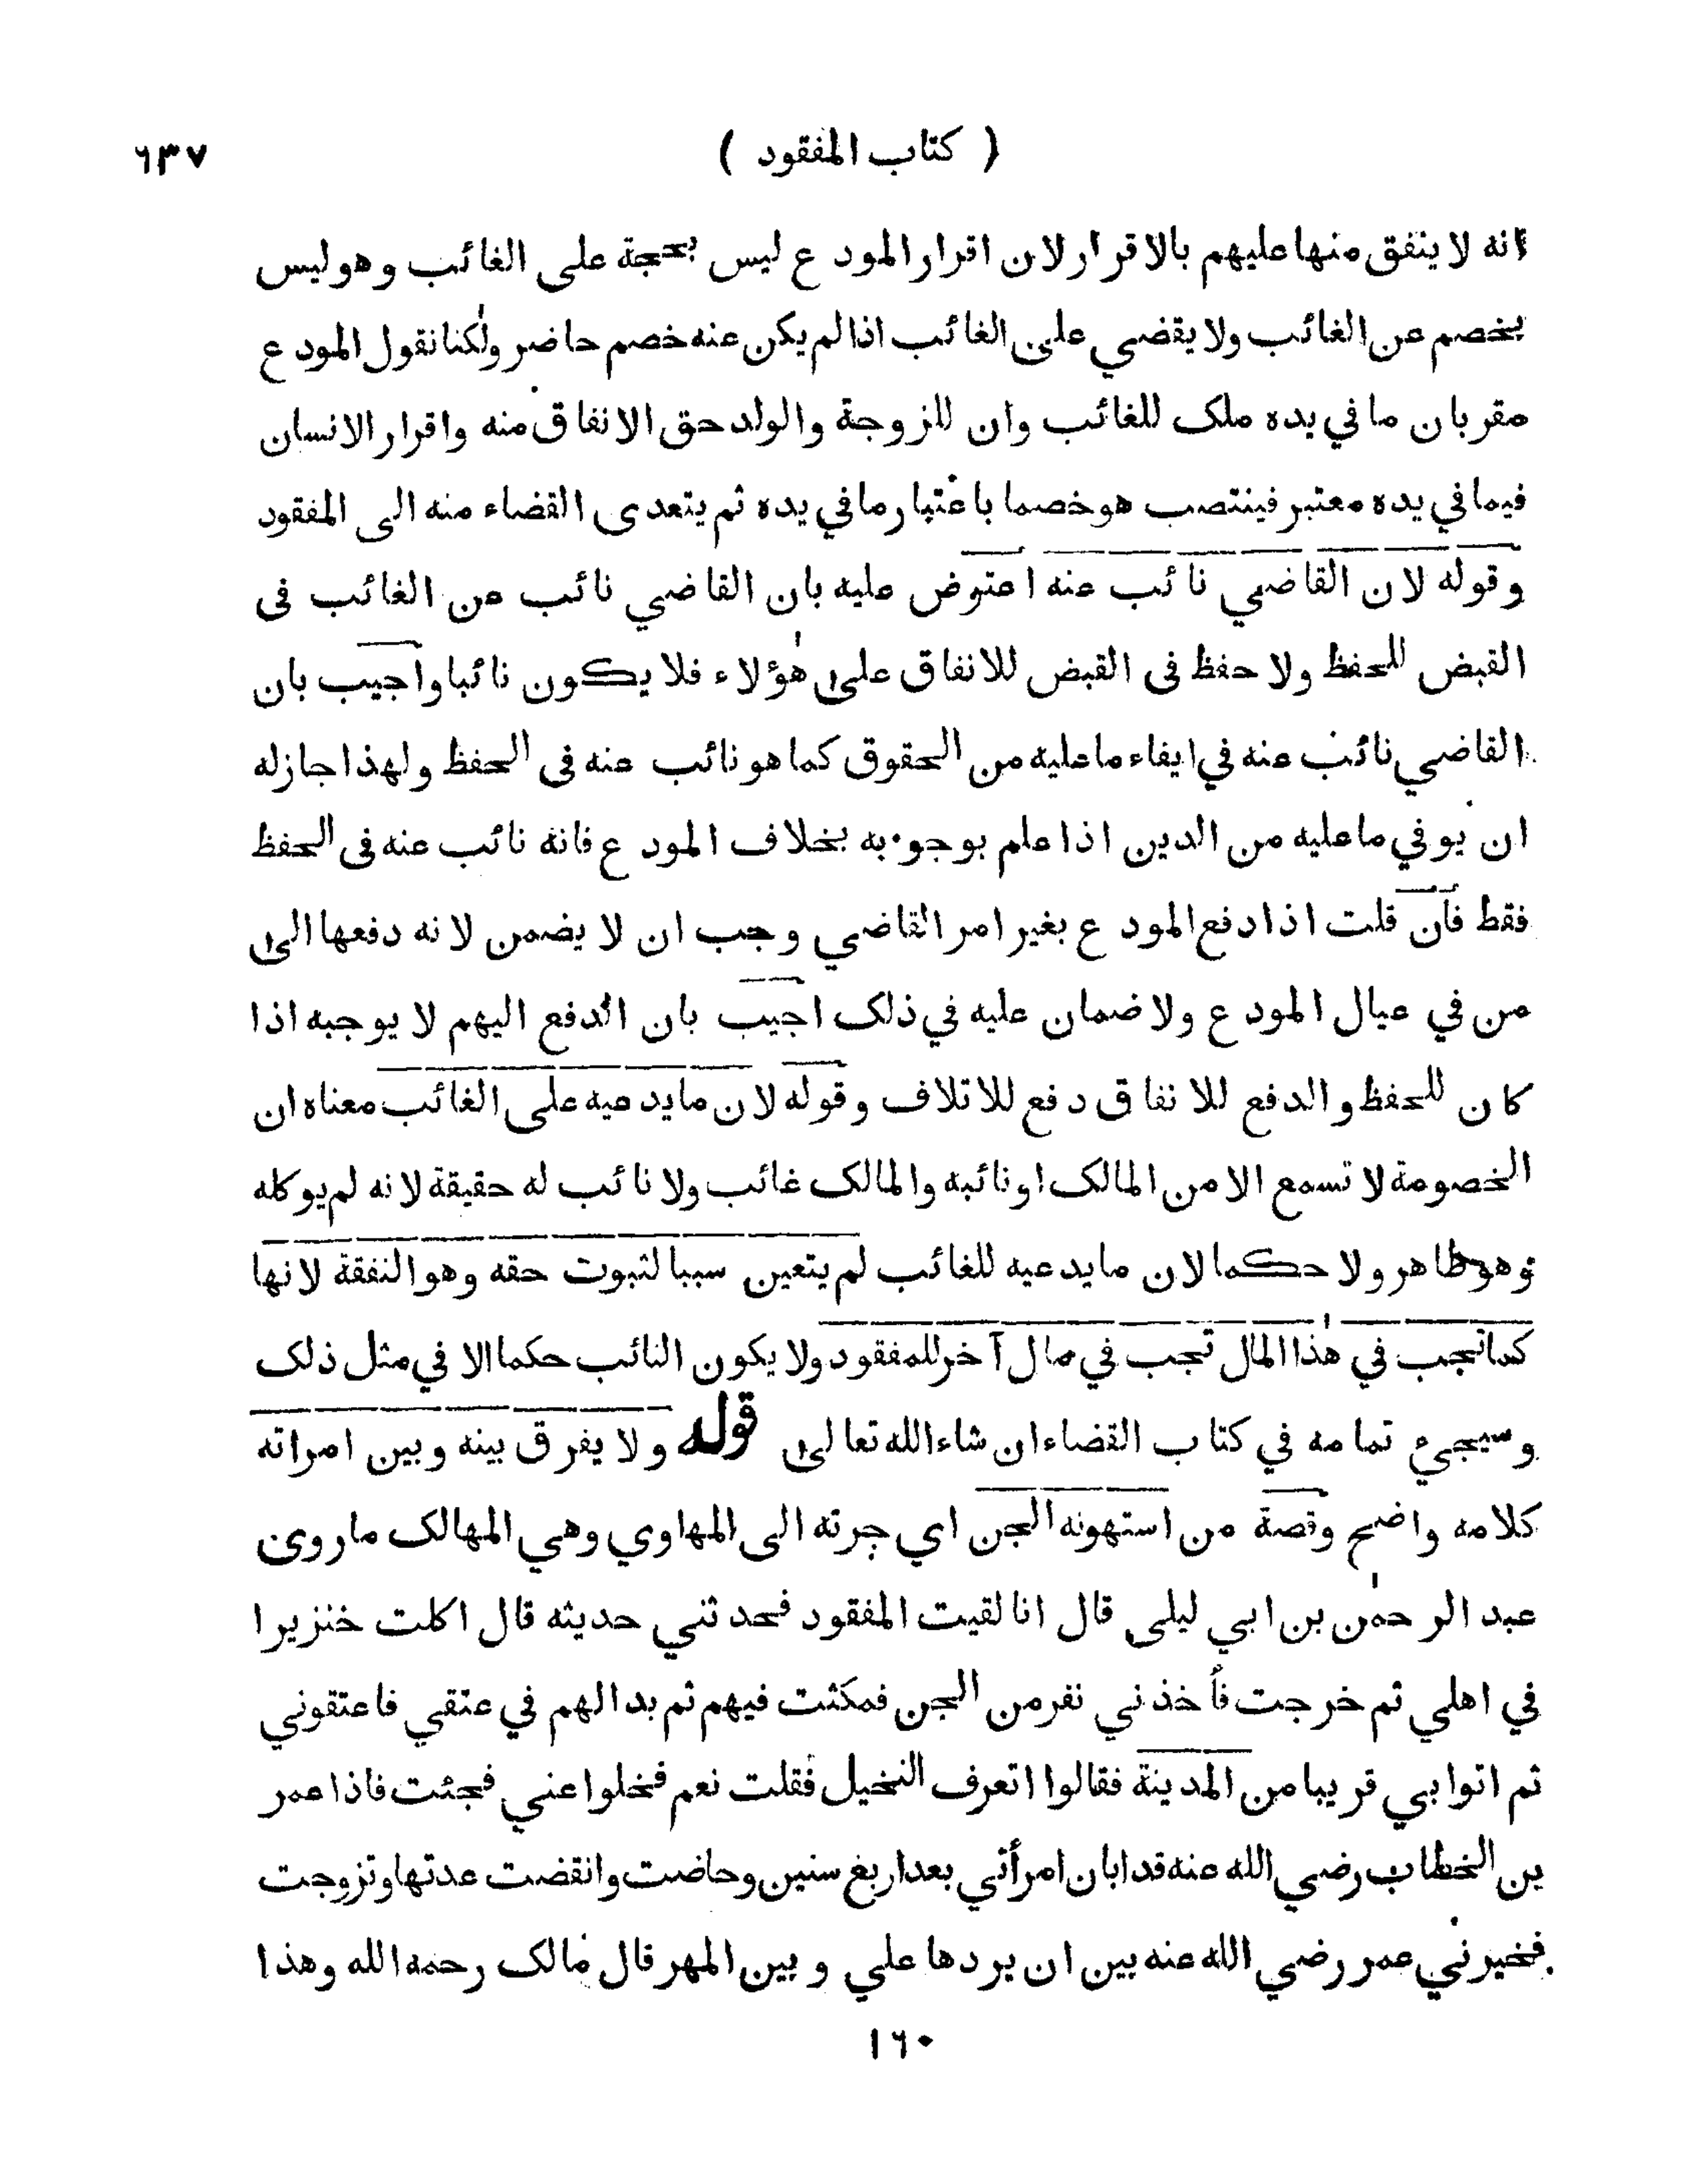 ( كتاب المفقود ) ٦٣٧
انه لا ينفق منها عليهم بالاقرار لان اقرار المودع ليس بحجة على الغائب وهو ليس
بخصم عن الغائب ولا يقضي على الغائب اذا لم يكن عنه خصم حاضر ولكنا نقول المودع
مقر بان ما في يده ملك للغائب وان للزوجة والولد حق الانفاق منه واقرار الانسان
فيما في يده معتبر فينتصب هو خصما باعتبار ما في يده ثم يتعدى القضاء منه الى المفقود
وقوله لان القاضي نائب عنه اعترض عليه بان القاضي نائب عن الغائب في
القبض للحفظ ولا حفظ في القبض للانفاق على هؤلاء فلا يكون نائبا واجيب بان
القاضي نائب عنه في ايفاء ما عليه من الحقوق كما هو نائب عنه في الحفظ ولهذا جاز له
ان يوفي ما عليه من الدين اذا علم بوجوبه بخلاف المودع فانه نائب عنه في الحفظ
فقط فان قلت اذا دفع المودع بغير امر القاضي وجب ان لا يضمن لانه دفعها الى
من في عيال المودع ولا ضمان عليه في ذلك اجيب بان الدفع اليهم لا يوجبه اذا
كان للحفظ والدفع للانفاق دفع للاتلاف وقوله لان ما يدعيه على الغائب معناه ان
الخصومة لا تسمع الا من المالك او نائبه والمالك غائب ولا نائب له حقيقة لانه لم يوكله
وهو ظاهر ولا حكما لان ما يدعيه للغائب لم يتعين سببا لثبوت حقه وهو النفقة لانها
كما تجب في هذا المال تجب في مال آخر للمفقود ولا يكون النائب حكما الا في مثل ذلك
وسيجيء تمامه في كتاب القضاء ان شاء الله تعالى قوله ولا يفرق بينه وبين امراته
كلامه واضح وقصة من استهوته الجن اي جرته الى المهاوي وهي المهالك ما روى
عبد الرحمن بن ابي ليلى قال انا لقيت المفقود فحدثني حديثه قال اكلت خنزيرا
في اهلي ثم خرجت فأخذني نفر من الجن فمكثت فيهم ثم بدا لهم في عتقي فاعتقوني
ثم اتوا بي قريبا من المدينة فقالوا اتعرف النخيل فقلت نعم فخلوا عني فجئت فاذا عمر
بن الخطاب رضي الله عنه قد ابان امرأتي بعد اربع سنين وحاضت وانقضت عدتها وتزوجت
فخيرني عمر رضي الله عنه بين ان يردها علي وبين المهر قال مالك رحمه الله وهذا
١٦٠